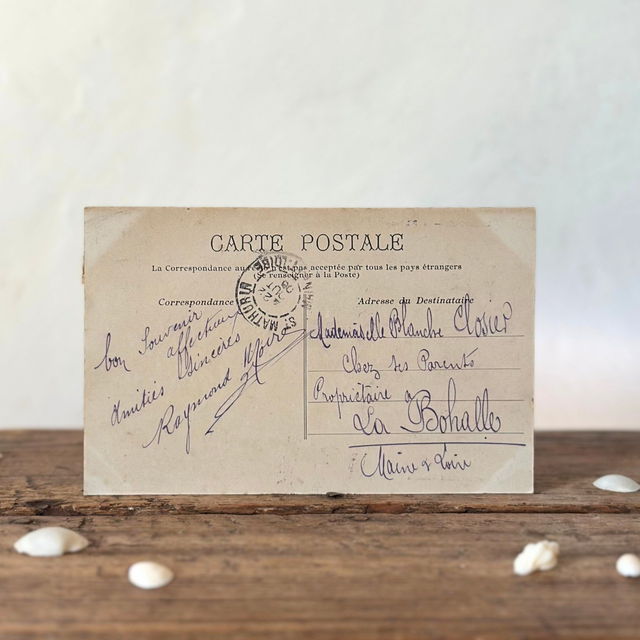 CARTE POSTALE
La Correspondance au recto n'est pas acceptée par tous les pays étrangers
(Se renseigner à la Poste)
Correspondance
bon Souvenir
affectueux
Amitiés Sincères
Raymond
St MATHURIN
Adresse du Destinataire
Mademoiselle Blanche Closier
Chez ses Parents
Propriétaire à
La Bohalle
Maine & Loire